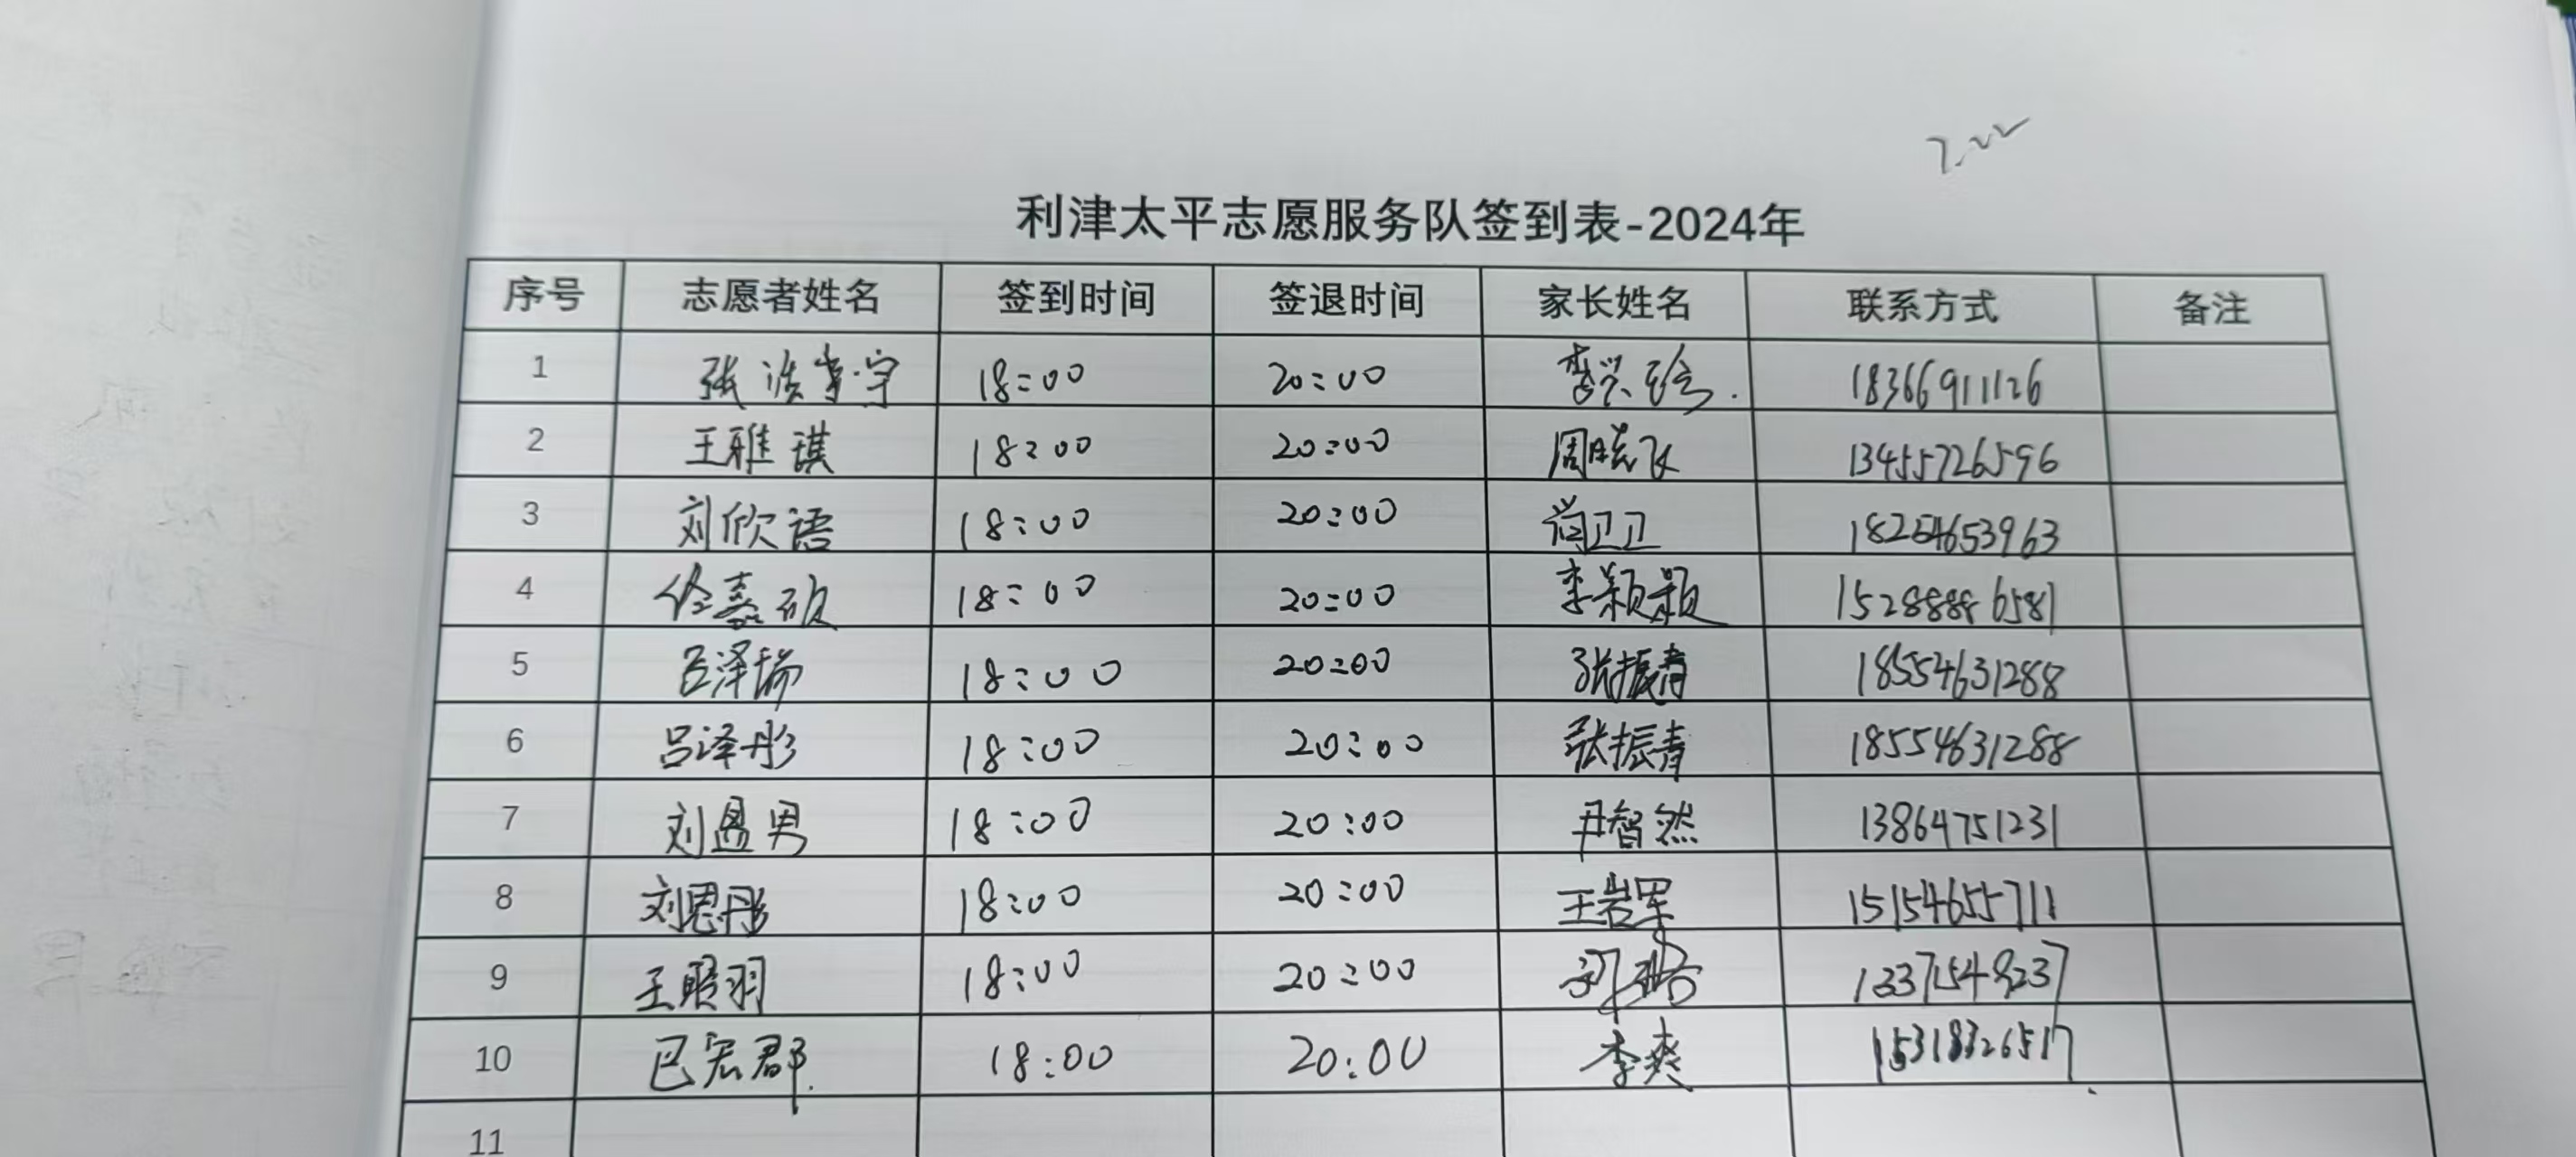 利津太平志愿服务队签到表-2024年
序号 志愿者姓名 签到时间 签退时间 家长姓名 联系方式 备注
1 张浩宇 18:00 20:00 李兴珍 18366911126
2 王雅琪 18:00 20:00 周晓飞 13455726596
3 刘欣语 18:00 20:00 尚卫卫 18254653963
4 嘉硕 18:00 20:00 李颖颖 15288886581
5 吕泽瑞 18:00 20:00 张振青 18554631288
6 吕泽彤 18:00 20:00 张振青 18554631288
7 刘盈男 18:00 20:00 尹智然 13864751231
8 刘恩彤 18:00 20:00 王岩军 15154655711
9 王熙羽 18:00 20:00
10 巴宏郡 18:00 20:00 李爽 15318326517
11